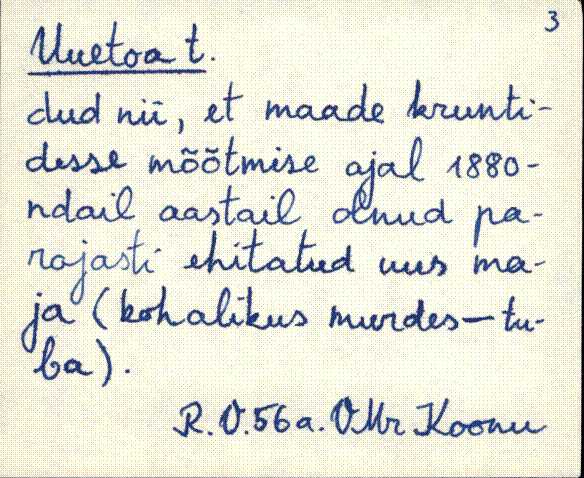 3
Uuetoa t.
dud nii, et maade krunti-
desse mõõtmise ajal 1880-
ndail aastail olnud pa-
rajasti ehitatud uus ma-
ja (kohalikus murdes - tu-
ba).
R. V. 56 a. VMr Koonu